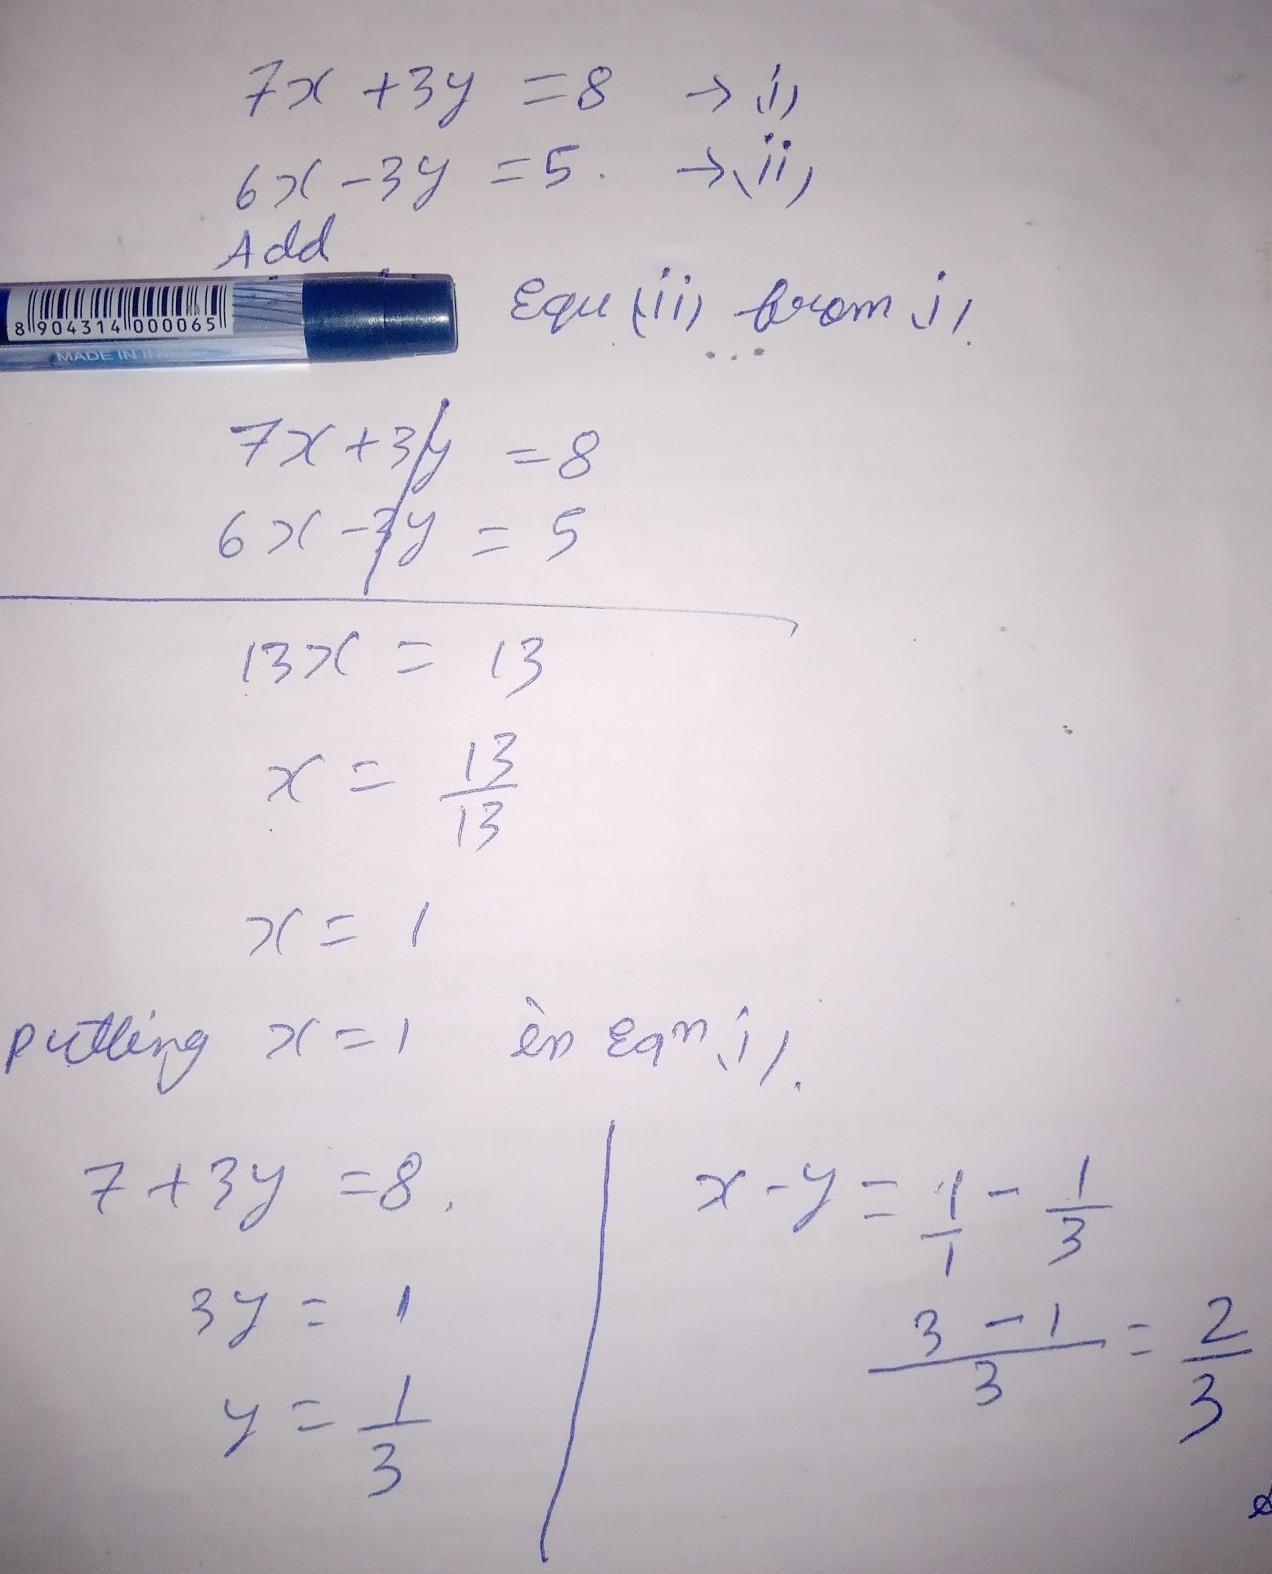 7x + 3y = 8 → (i)
6x - 3y = 5. → (ii)
Add
8 904314 000065
MADE IN IN
Equ (ii) from (i).
7x + 3y = 8
6x - 3y = 5
13x = 13
x = 13/13
x = 1
putting x = 1 in Eqn (i).
7 + 3y = 8.
3y = 1
y = 1/3
x - y = 1/1 - 1/3
3 - 1/3 = 2/3